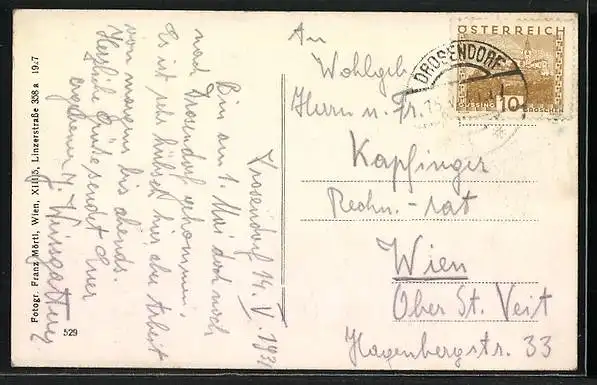 Drosendorf 14. V. 1931
Bin am 1. Mai doch noch
nach Drosendorf gekommen.
Es ist sehr hübsch hier, aber Arbeit
von morgens bis abends.
Herzliche Grüße sendet Euer
ergebener
Fotogr. Franz Mörtl, Wien, XIII/5, Linzerstraße 358a 19:7
529
ÖSTERREICH
GÜSSING
10
GROSCHEN
DROSENDORF
An
Wohlgeb.
Herrn u. Fr.
Kapfinger
Rechn.-rat
Wien
Ober St. Veit
Hagenbergstr. 33